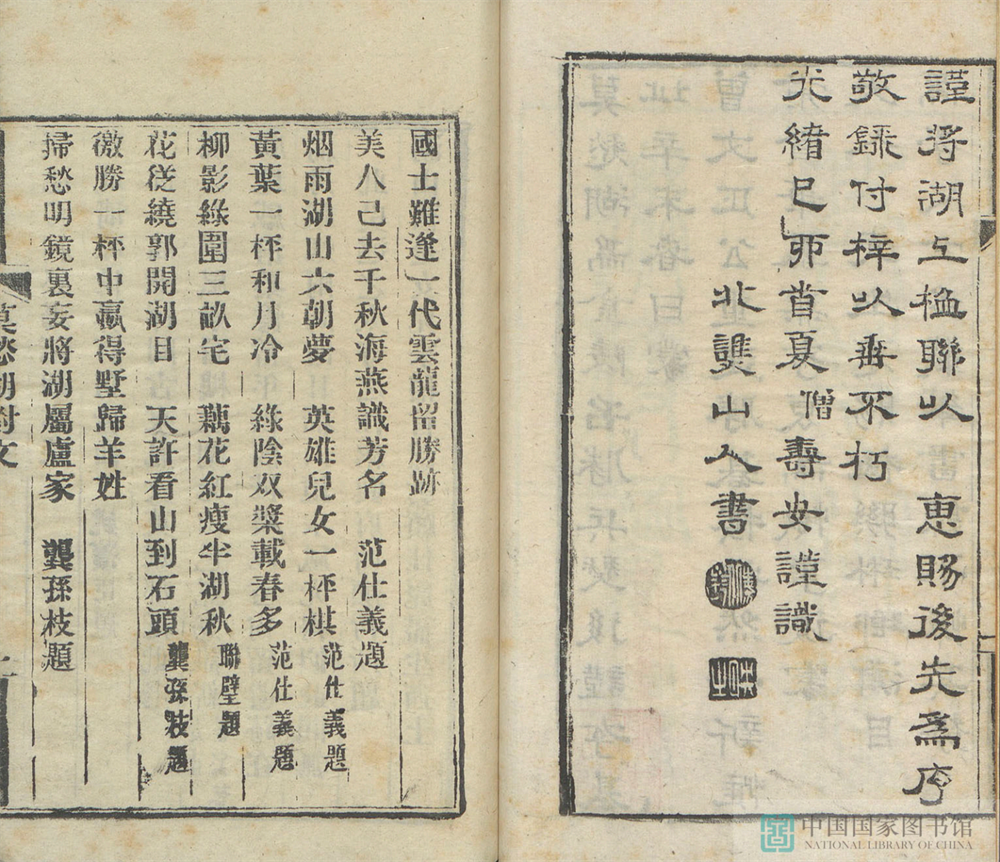 謹將湖上楹聯以 惠賜後先為序
敬錄付梓以垂不朽
光緒巳卯首夏僧壽安謹識
北墅山人書
國士難逢一代雲龍留勝跡
美人己去千秋海燕識芳名 范仕義題
烟雨湖山六朝夢 英雄兒女一枰棋 范仕義題
黃葉一枰和月冷 綠陰双槳載春多 范仕義題
柳影綠圍三畝宅 藕花紅瘦半湖秋 聯璧題
花從繞郭開湖目 天許看山到石頭 龔孫枝題
徼勝一枰中贏得墅歸羊姓
掃愁明鏡裏妄將湖屬盧家 龔孫枝題
莫愁湖對文
一
中国国家图书馆
NATIONAL LIBRARY OF CHINA